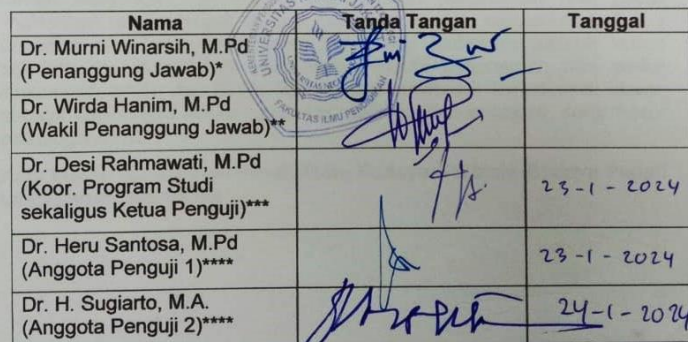 Nama Tanda Tangan Tanggal
Dr. Murni Winarsih, M.Pd
(Penanggung Jawab)*
Dr. Wirda Hanim, M.Pd
(Wakil Penanggung Jawab)**
Dr. Desi Rahmawati, M.Pd
(Koor. Program Studi
sekaligus Ketua Penguji)*** 23-1-2024
Dr. Heru Santosa, M.Pd
(Anggota Penguji 1)**** 23-1-2024
Dr. H. Sugiarto, M.A.
(Anggota Penguji 2)**** 24-1-2024
FAKULTAS ILMU PENDIDIKAN